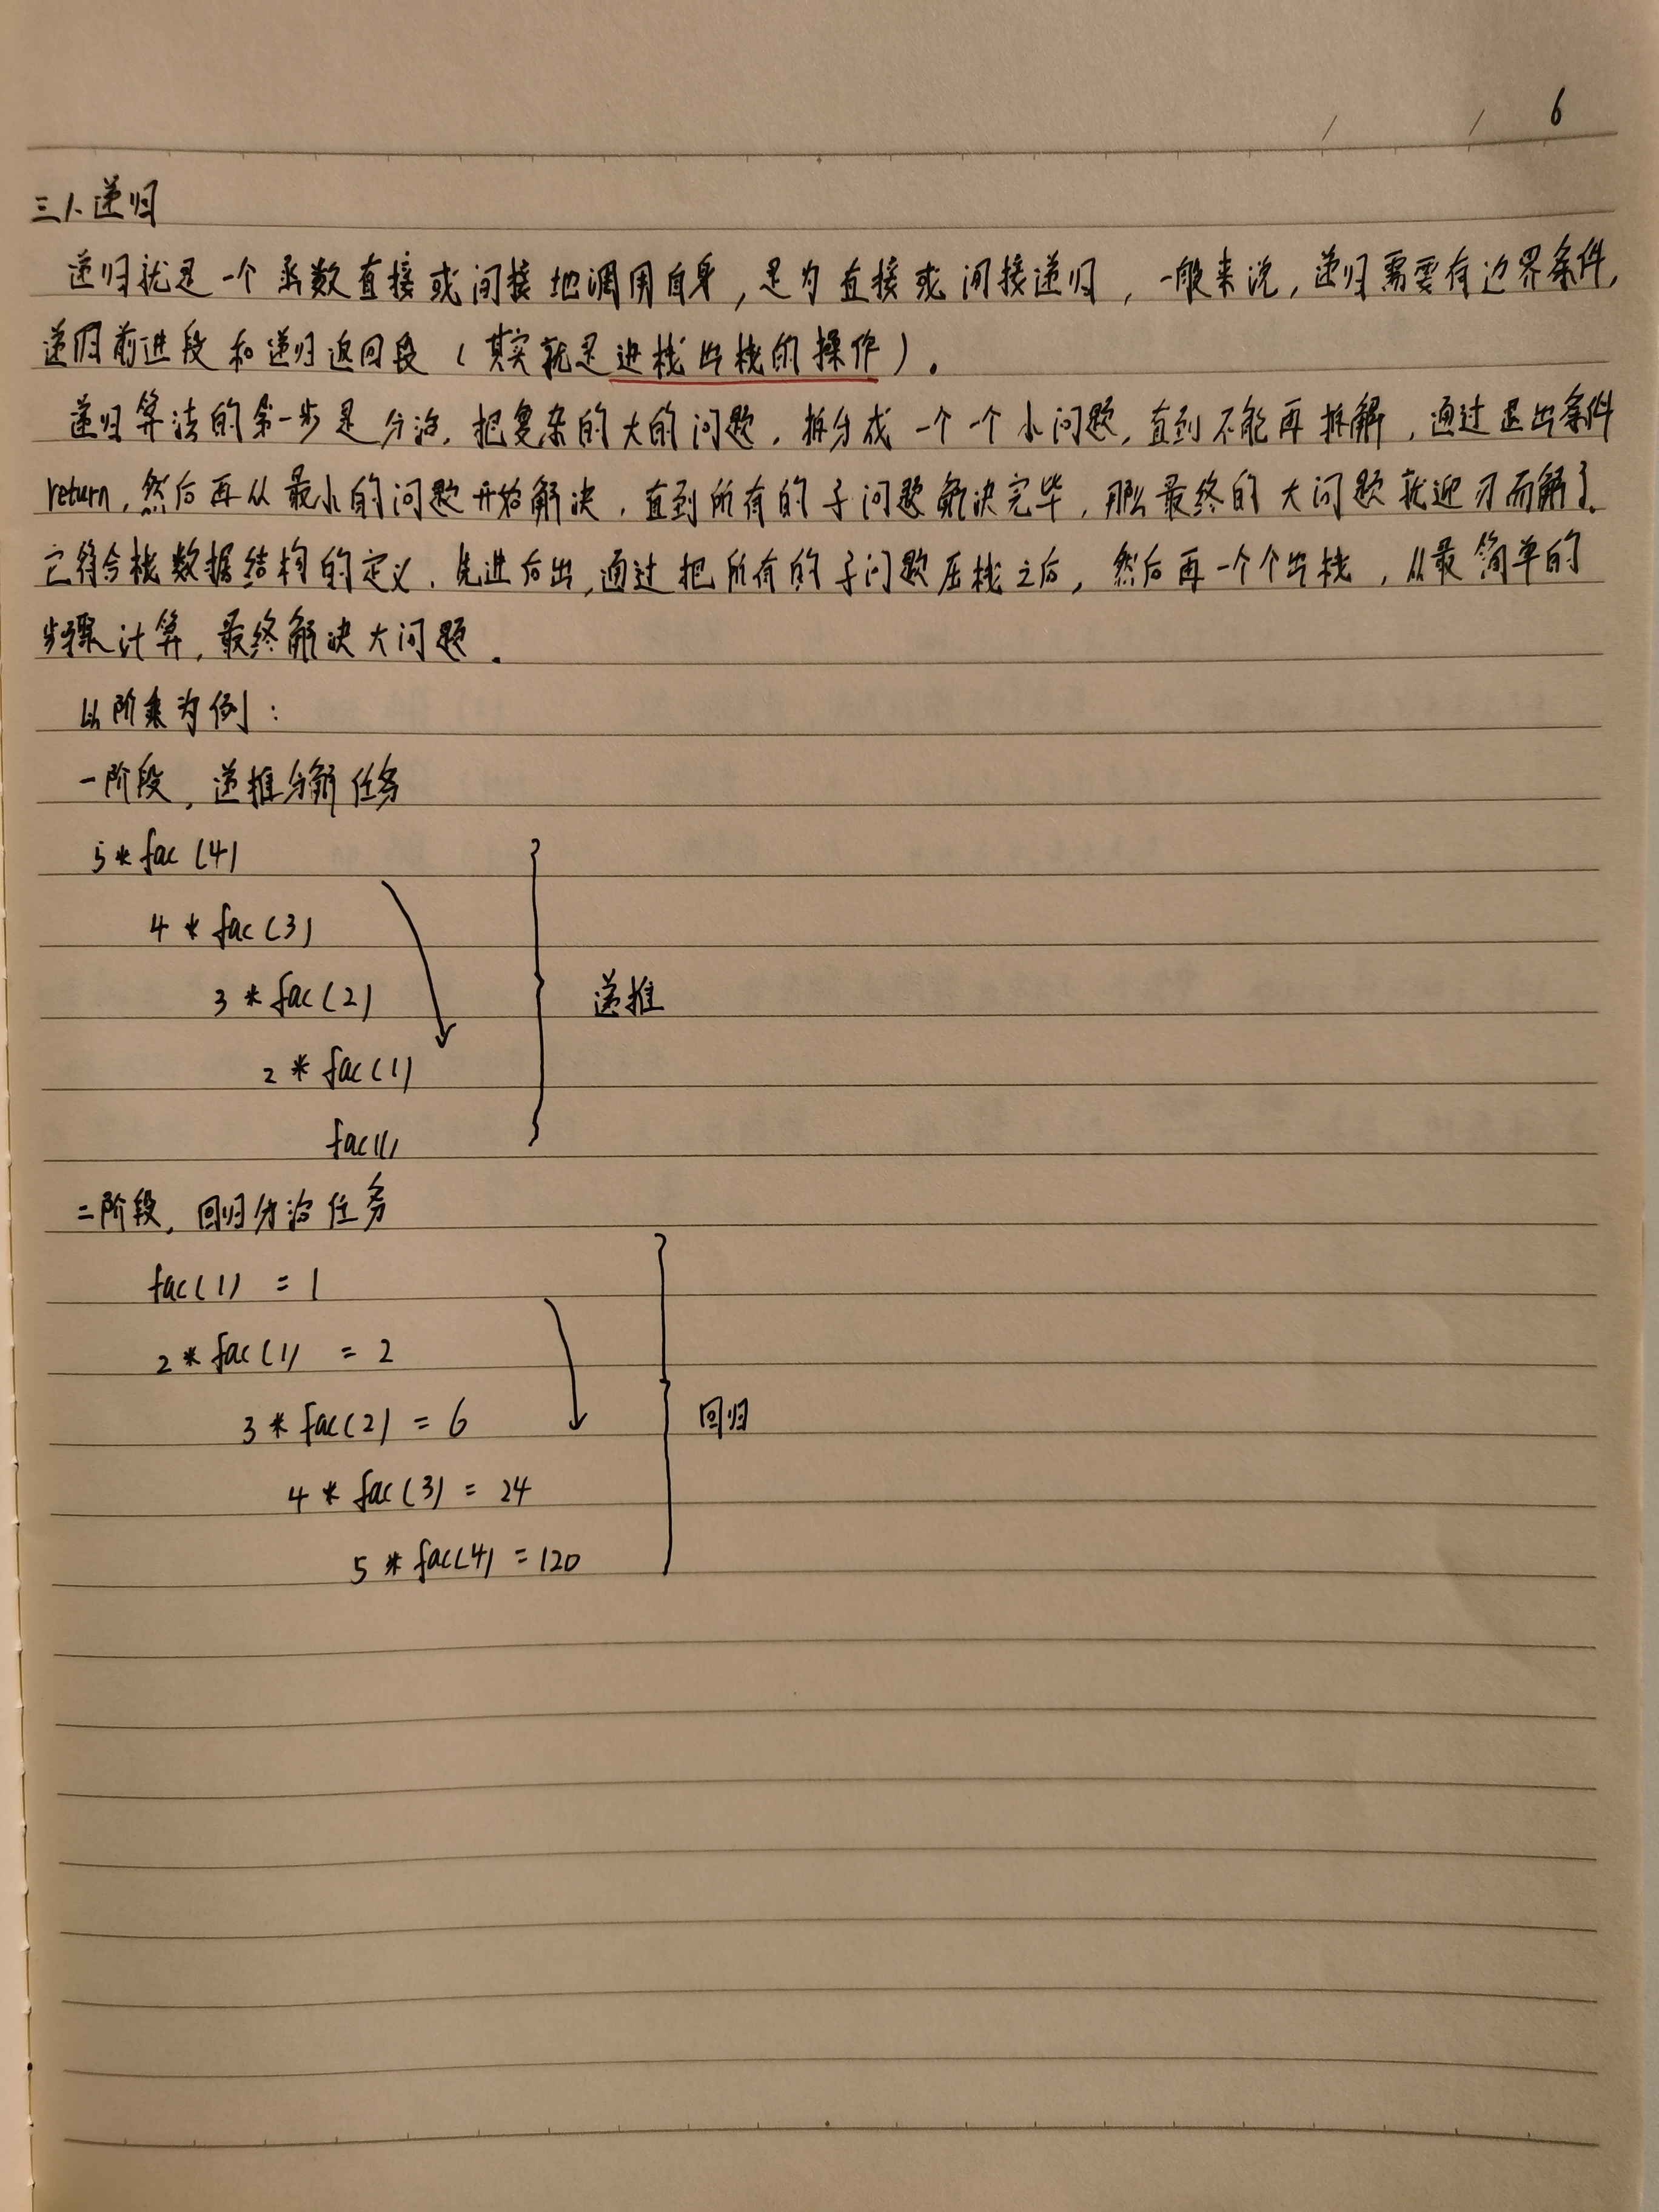 6
三、递归
递归就是一个函数直接或间接地调用自身，是为直接或间接递归，一般来说，递归需要有边界条件，
递归前进段和递归返回段（其实就是进栈出栈的操作）。
递归算法的第一步是分治，把复杂的大的问题，拆分成一个一个小问题，直到不能再拆解，通过退出条件
return，然后再从最小的问题开始解决，直到所有的子问题解决完毕，那么最终的大问题就迎刃而解了。
它符合栈数据结构的定义，先进后出，通过把所有的子问题压栈之后，然后再一个个出栈，从最简单的
步骤计算，最终解决大问题。
以阶乘为例：
一阶段，递推分解任务
5*fac(4)
4*fac(3)
3*fac(2)
2*fac(1)
fac(1)
递推
二阶段，回归分治任务
fac(1) = 1
2*fac(1) = 2
3*fac(2) = 6
4*fac(3) = 24
5*fac(4) = 120
回归